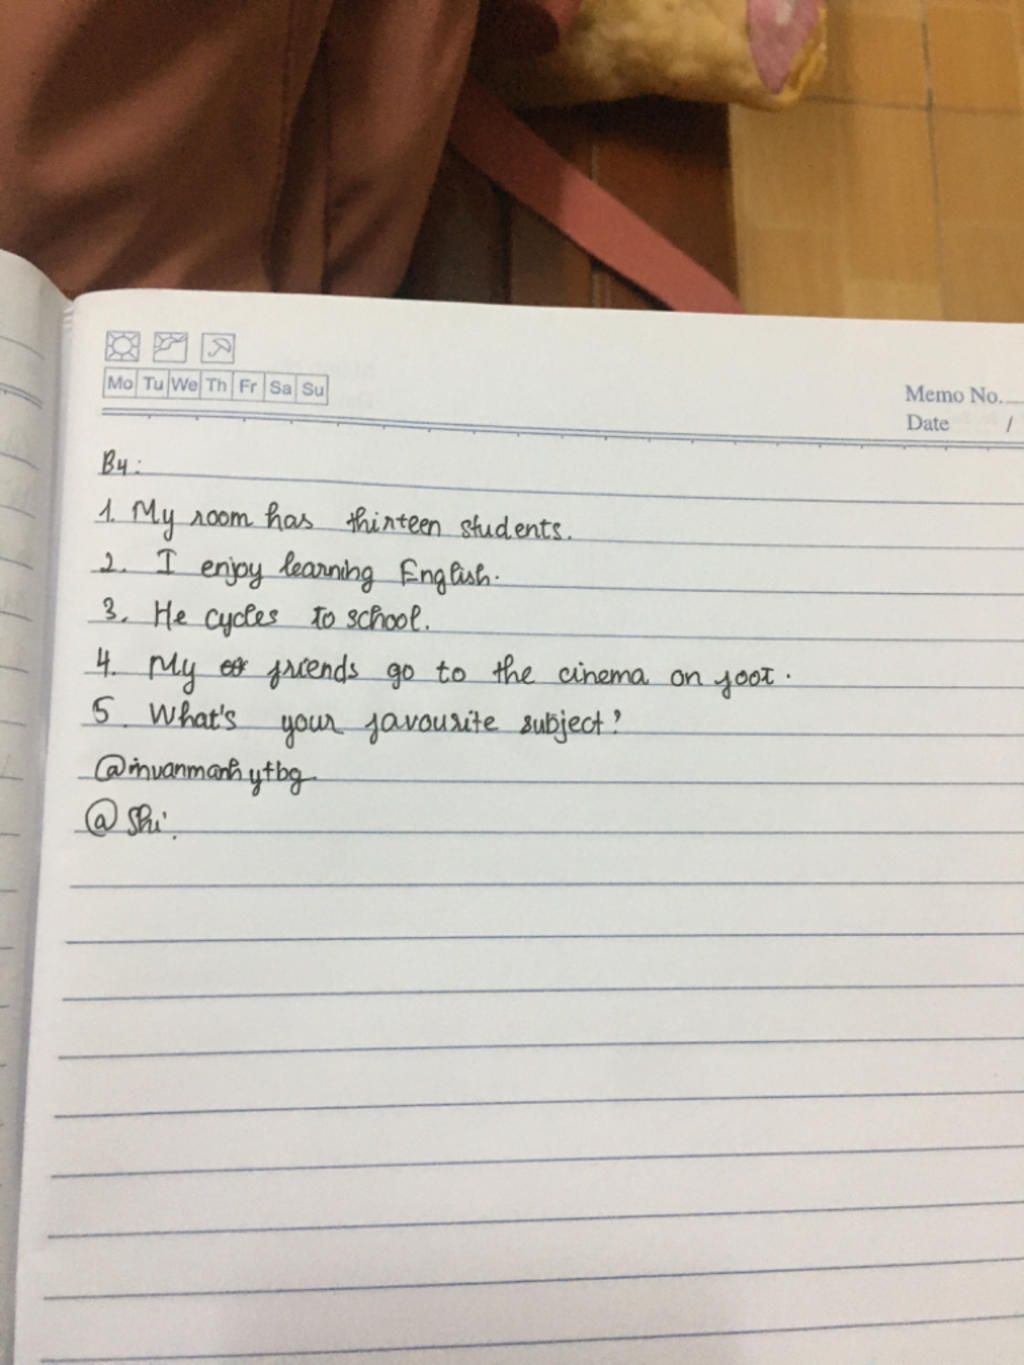 Mo Tu We Th Fr Sa Su
Memo No.
Date /
B4:
1. My room has thirteen students.
2. I enjoy learning English.
3. He cycles to school.
4. My friends go to the cinema on foot.
5. What's your favourite subject?
@invanmanhytbg
@Shi.